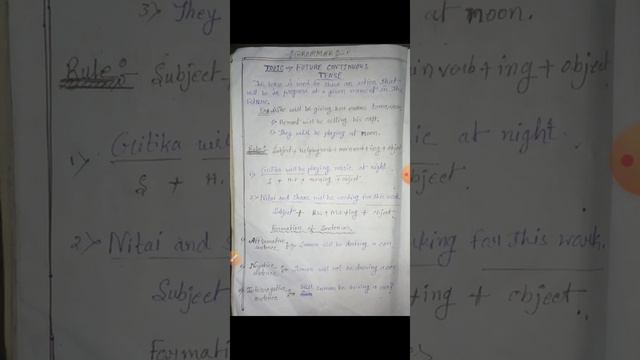 GRAMMAR
TOPIC → FUTURE CONTINUOUS
TENSE
This tense is used to show an action that
will be in progress at a given moment in the
future.
She will be giving her exams tomorrow.
2) Hemant will be selling his car.
3) They will be playing at moon.
Rule: Subject + helping verb + main verb + ing + object
1) Gitika will be playing music at night.
S + H.V + + ing + object
2) Nitai and will be working for this work.
Subject + H.V + M.V + ing + object.
Formation of Sentences
Affirmative sentence :- Suman will be driving a car.
Negative sentence :- Suman will not be driving a car.
Interrogative sentence :- Will Suman be driving a car?